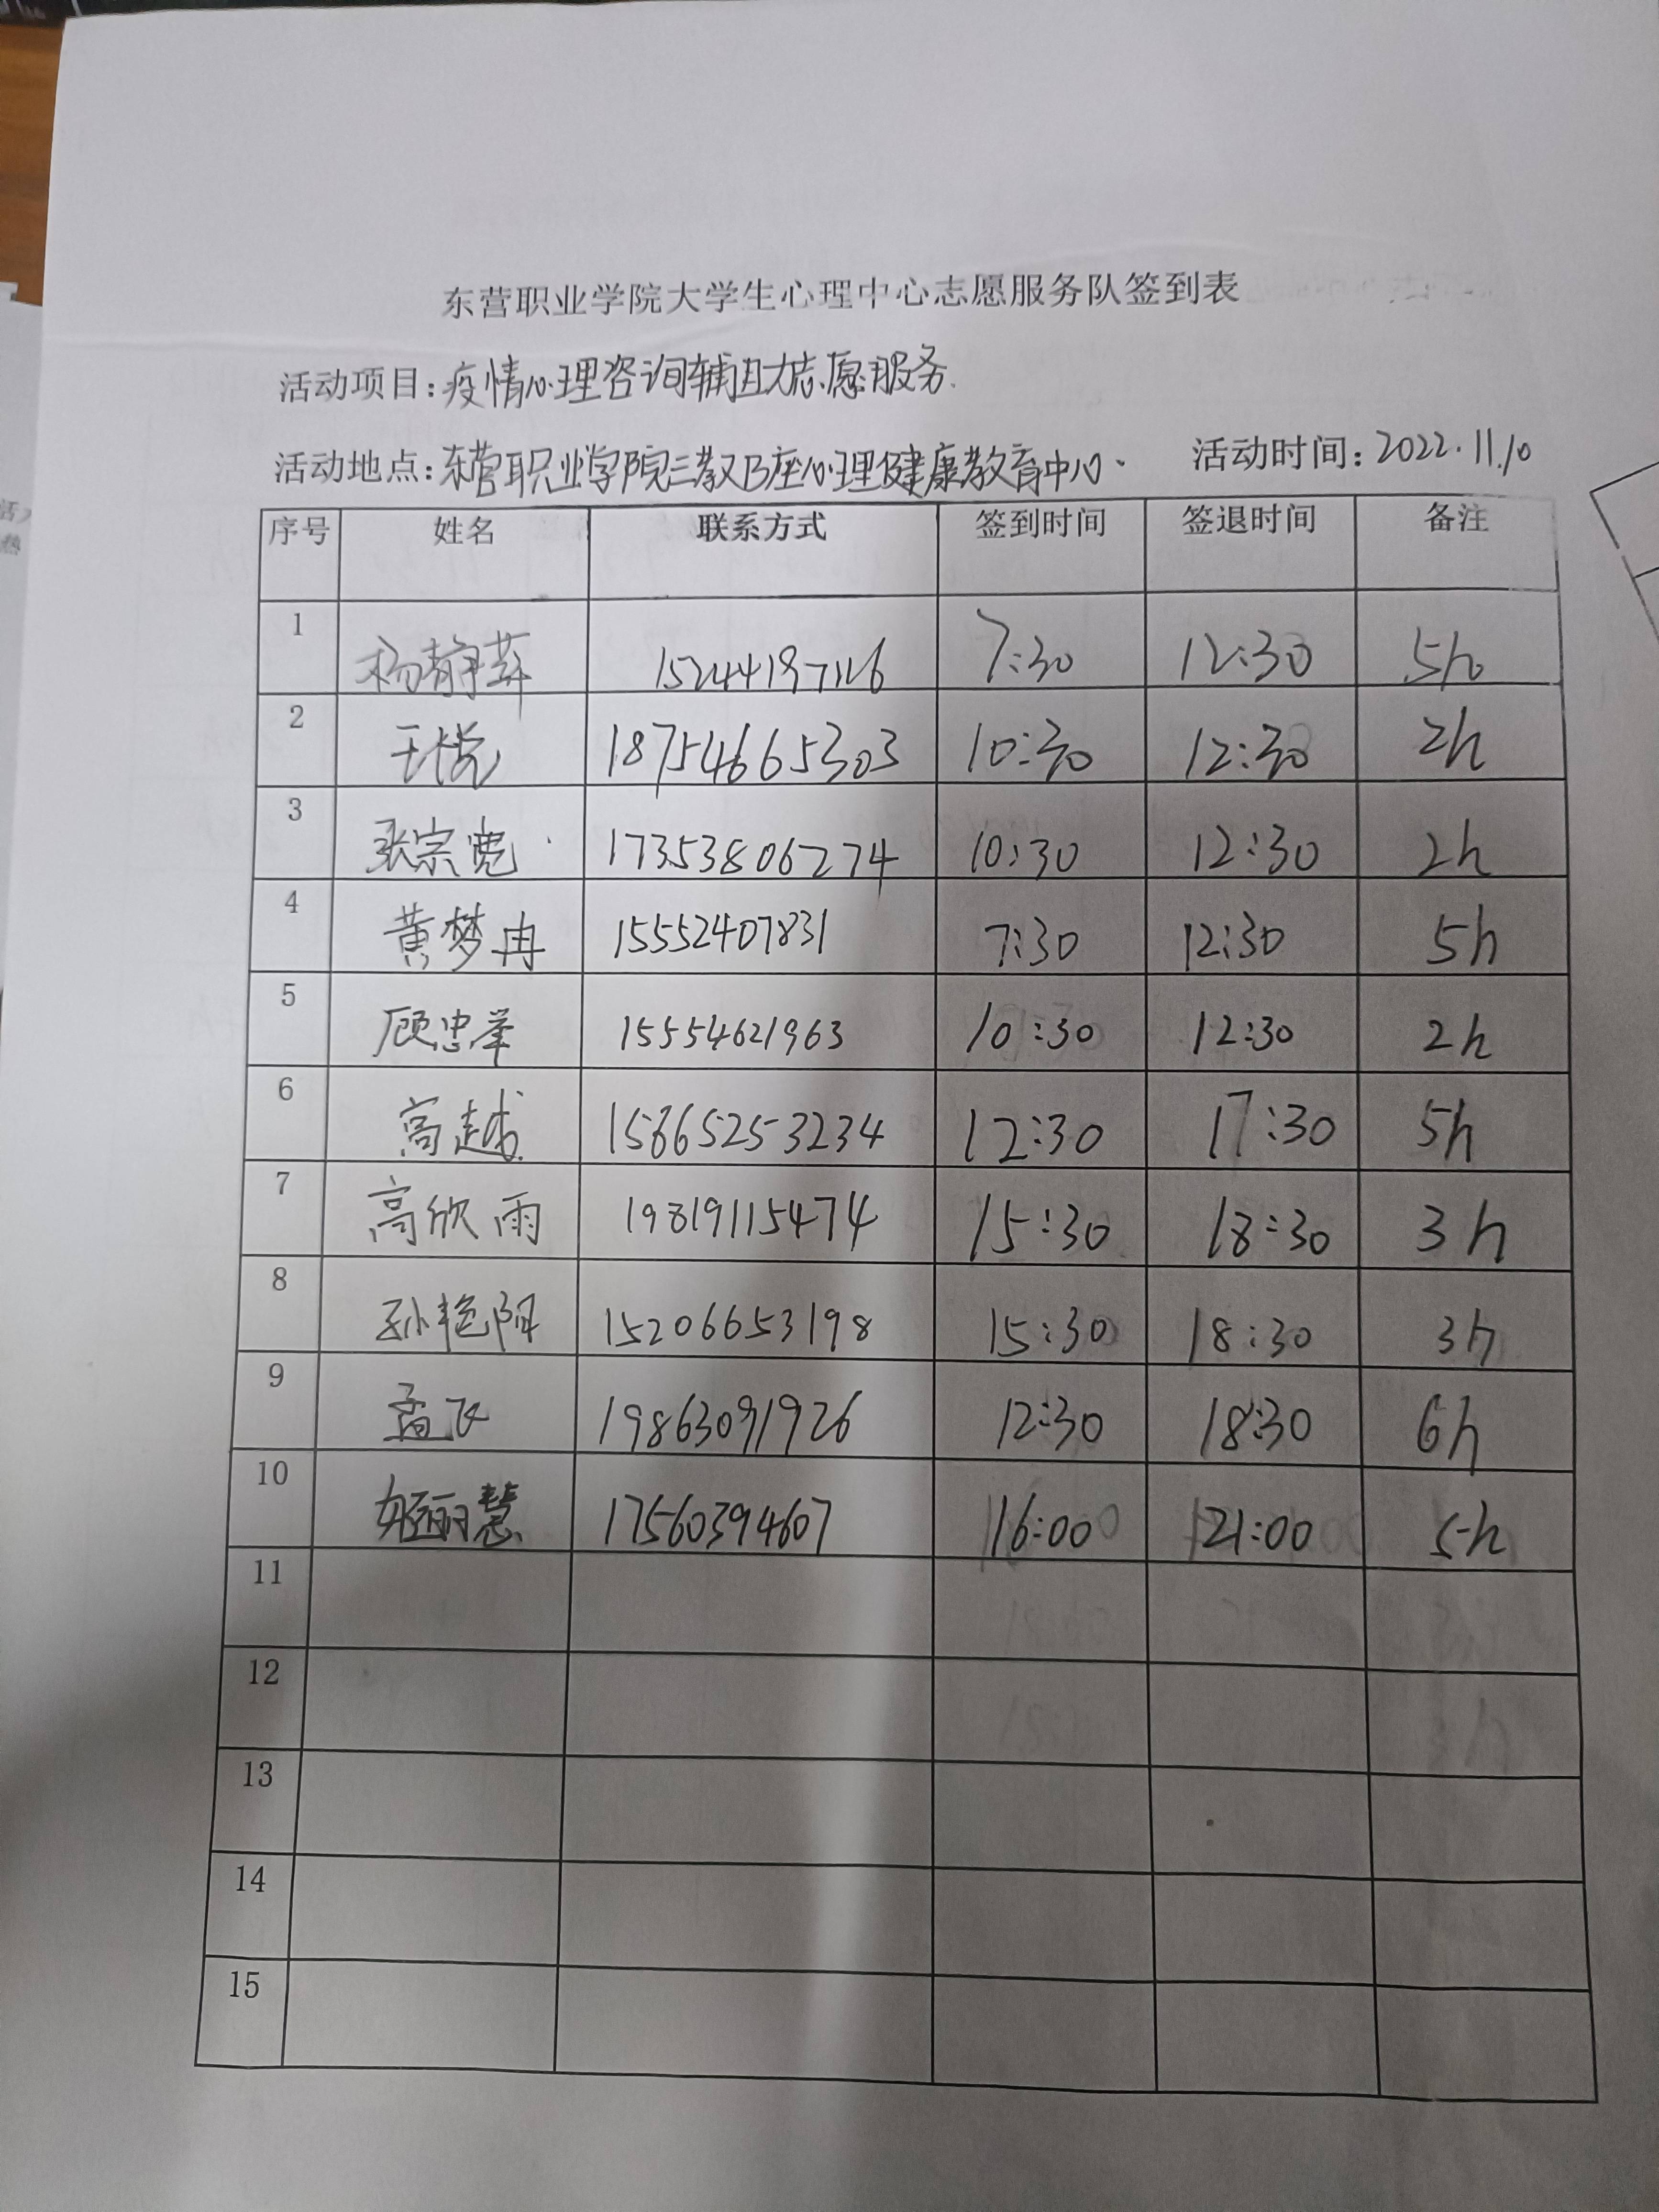 东营职业学院大学生心理中心志愿服务队签到表
活动项目:疫情心理咨询辅助志愿服务.
活动地点:东营职业学院三教B座心理健康教育中心. 活动时间:2022.11.10
序号 姓名 联系方式 签到时间 签退时间 备注
1 杨静萍 15244197116 7:30 12:30 5h
2 王悦 18754665303 10:30 12:30 2h
3 张宗宽 17353806274 10:30 12:30 2h
4 黄梦冉 15552407831 7:30 12:30 5h
5 顾忠举 15554621963 10:30 12:30 2h
6 高越 15665253234 12:30 17:30 5h
7 高欣雨 19819115474 15:30 18:30 3h
8 孙艳阳 15206653198 15:30 18:30 3h
9 孟飞 19863091926 12:30 18:30 6h
10 丽慧 17560394607 16:00 21:00 5h
11
12
13
14
15